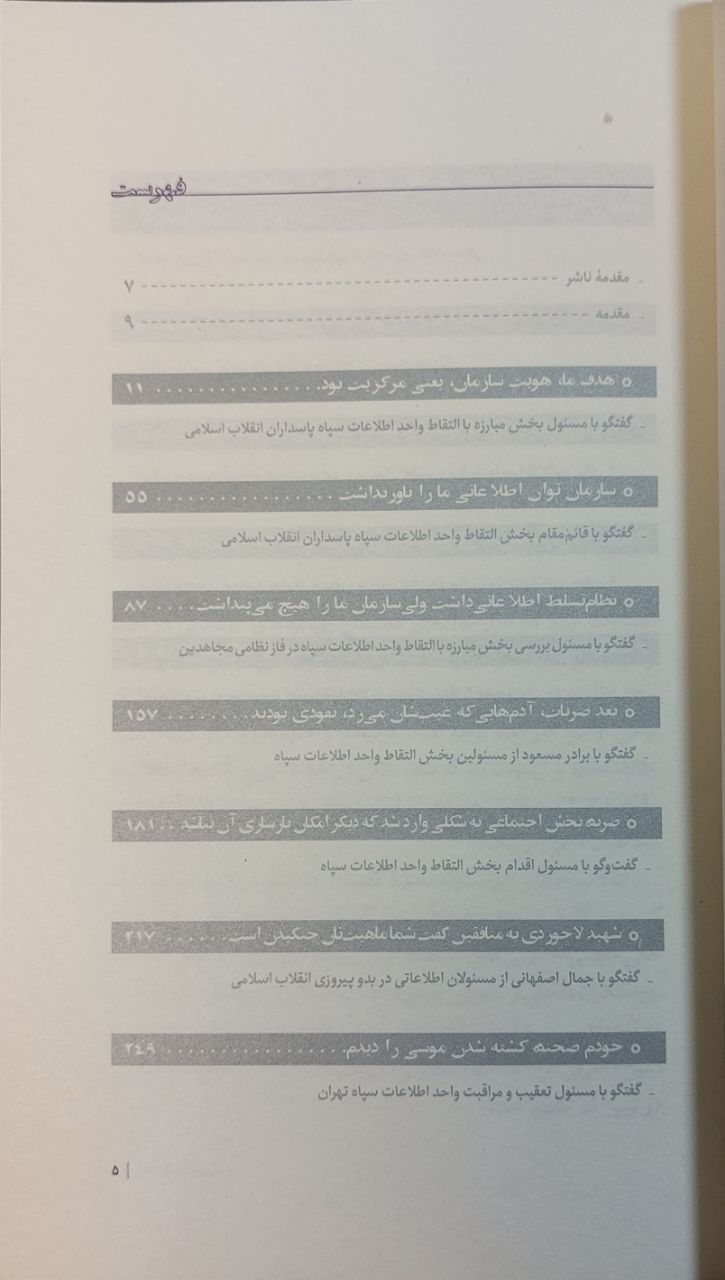 فهرست
ـ مقدمهٔ ناشر ------------------------------ ۷
ـ مقدمه ------------------------------ ۹
○ هدف ما، هویت سازمان، یعنی مرکزیت بود. . . . . . . . . . . . . . . . . ۱۱
ـ گفتگو با مسئول بخش مبارزه با التقاط واحد اطلاعات سپاه پاسداران انقلاب اسلامی
○ سازمان توان اطلاعاتی ما را باور نداشت . . . . . . . . . . . . . . . . . ۵۵
ـ گفتگو با قائم‌مقام بخش التقاط واحد اطلاعات سپاه پاسداران انقلاب اسلامی
○ نظام تسلط اطلاعاتی داشت ولی سازمان ما را هیچ می‌پنداشت. . . . ۸۷
ـ گفتگو با مسئول بررسی بخش مبارزه با التقاط واحد اطلاعات سپاه در فاز نظامی مجاهدین
○ بعد ضربات، آدم‌هائی که غیب‌شان می‌زد، نفوذی بودند. . . . . . . . ۱۵۷
ـ گفتگو با برادر مسعود از مسئولین بخش التقاط واحد اطلاعات سپاه
○ ضربه بخش اجتماعی به شکلی وارد شد که دیگر امکان بازسازی آن نباشد . . ۱۸۱
ـ گفت‌وگو با مسئول اقدام بخش التقاط واحد اطلاعات سپاه
○ شهید لاجوردی به منافقین گفت شما ماهیت‌تان جنگیدن است. . . . . . ۲۱۷
ـ گفتگو با جمال اصفهانی از مسئولان اطلاعاتی در بدو پیروزی انقلاب اسلامی
○ خودم صحنه کشته شدن موسی را دیدم. . . . . . . . . . . . . . . . . ۲۴۹
ـ گفتگو با مسئول تعقیب و مراقبت واحد اطلاعات سپاه تهران
| ۵